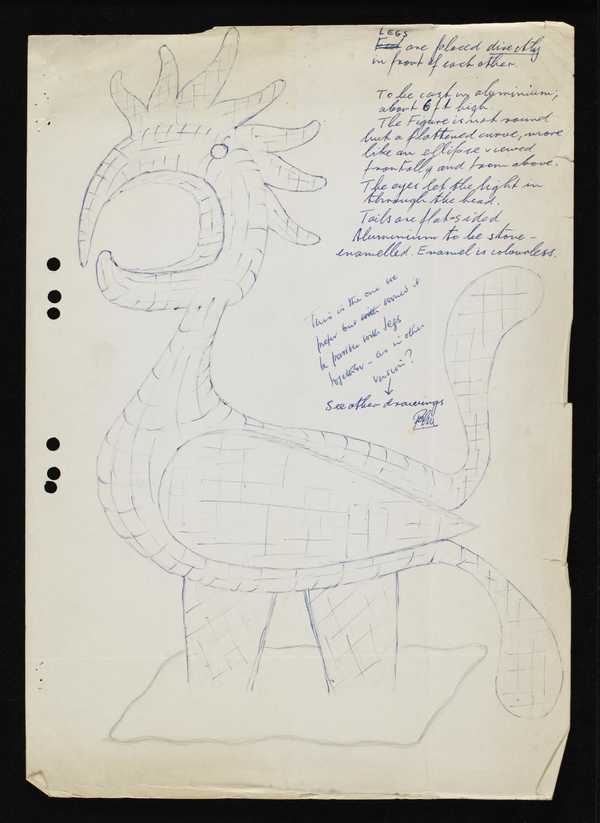 LEGS
Feet are placed directly
in front of each other.
To be cast in aluminium,
about 6 ft high
The Figure is not round
but a flattened curve, more
like an ellipse viewed
frontally and from above.
The eyes let the light in
through the head.
Tails are flat-sided
Aluminium to be stove-
enamelled. Enamel is colourless.
This is the one we
prefer but with would it
be possible with legs
together - as in other
version?
See other drawings